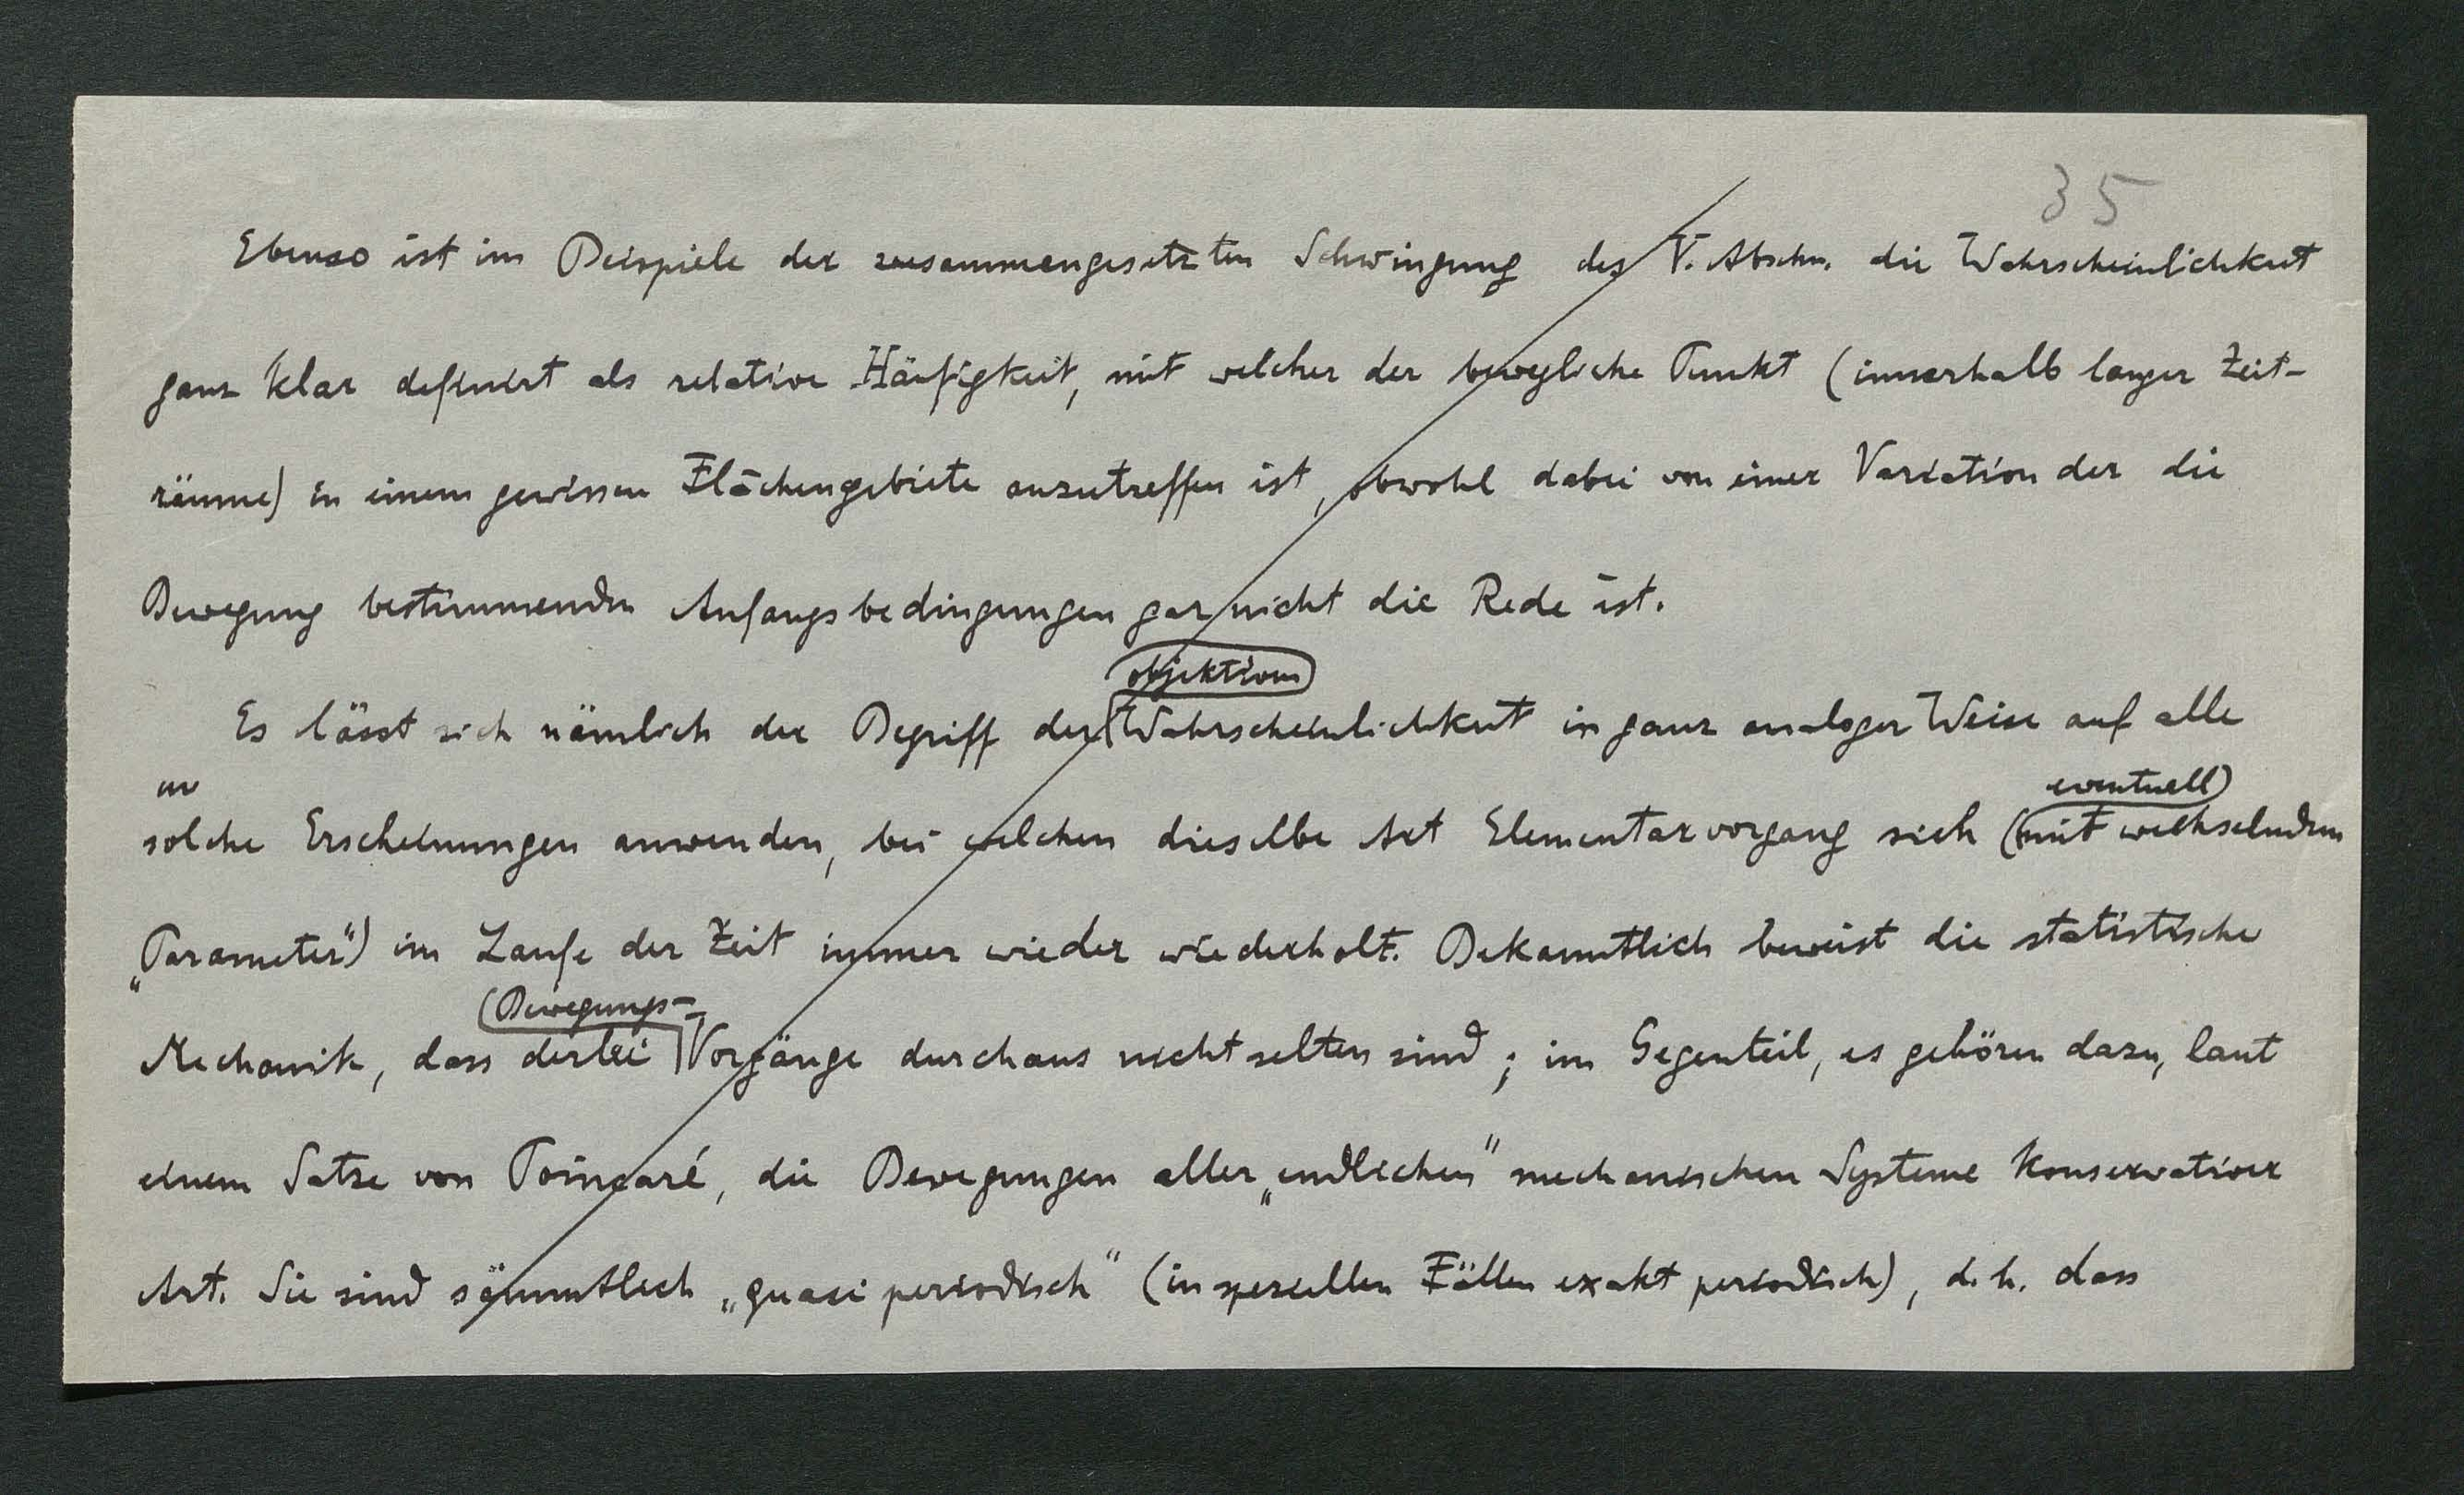 35
Ebenso ist im Beispiele der zusammengesetzten Schwingung des V. Abschn. die Wahrscheinlichkeit
ganz klar definiert als relative Häufigkeit, mit welcher der bewegliche Punkt (innerhalb langer Zeit-
räume) in einem gewissen Flächengebiete anzutreffen ist, obwohl dabei von einer Variation der die
Bewegung bestimmenden Anfangsbedingungen gar nicht die Rede ist.
objektiven
Es lässt sich nämlich der Begriff der Wahrscheinlichkeit in ganz analoger Weise auf alle
eventuell
solche Erscheinungen anwenden, bei welchen dieselbe Art Elementarvorgang sich (mit wechselndem
„Parameter“) im Laufe der Zeit immer wieder wiederholt. Bekanntlich beweist die statistische
Bewegungs-
Mechanik, dass derlei Vorgänge durchaus nicht selten sind; im Gegenteil, es gehören dazu, laut
einem Satze von Poincaré, die Bewegungen aller „endlichen“ mechanischen Systeme konservativer
Art. Sie sind sämmtlich „quasi periodisch“ (in speziellen Fällen exakt periodisch), d. h. dass